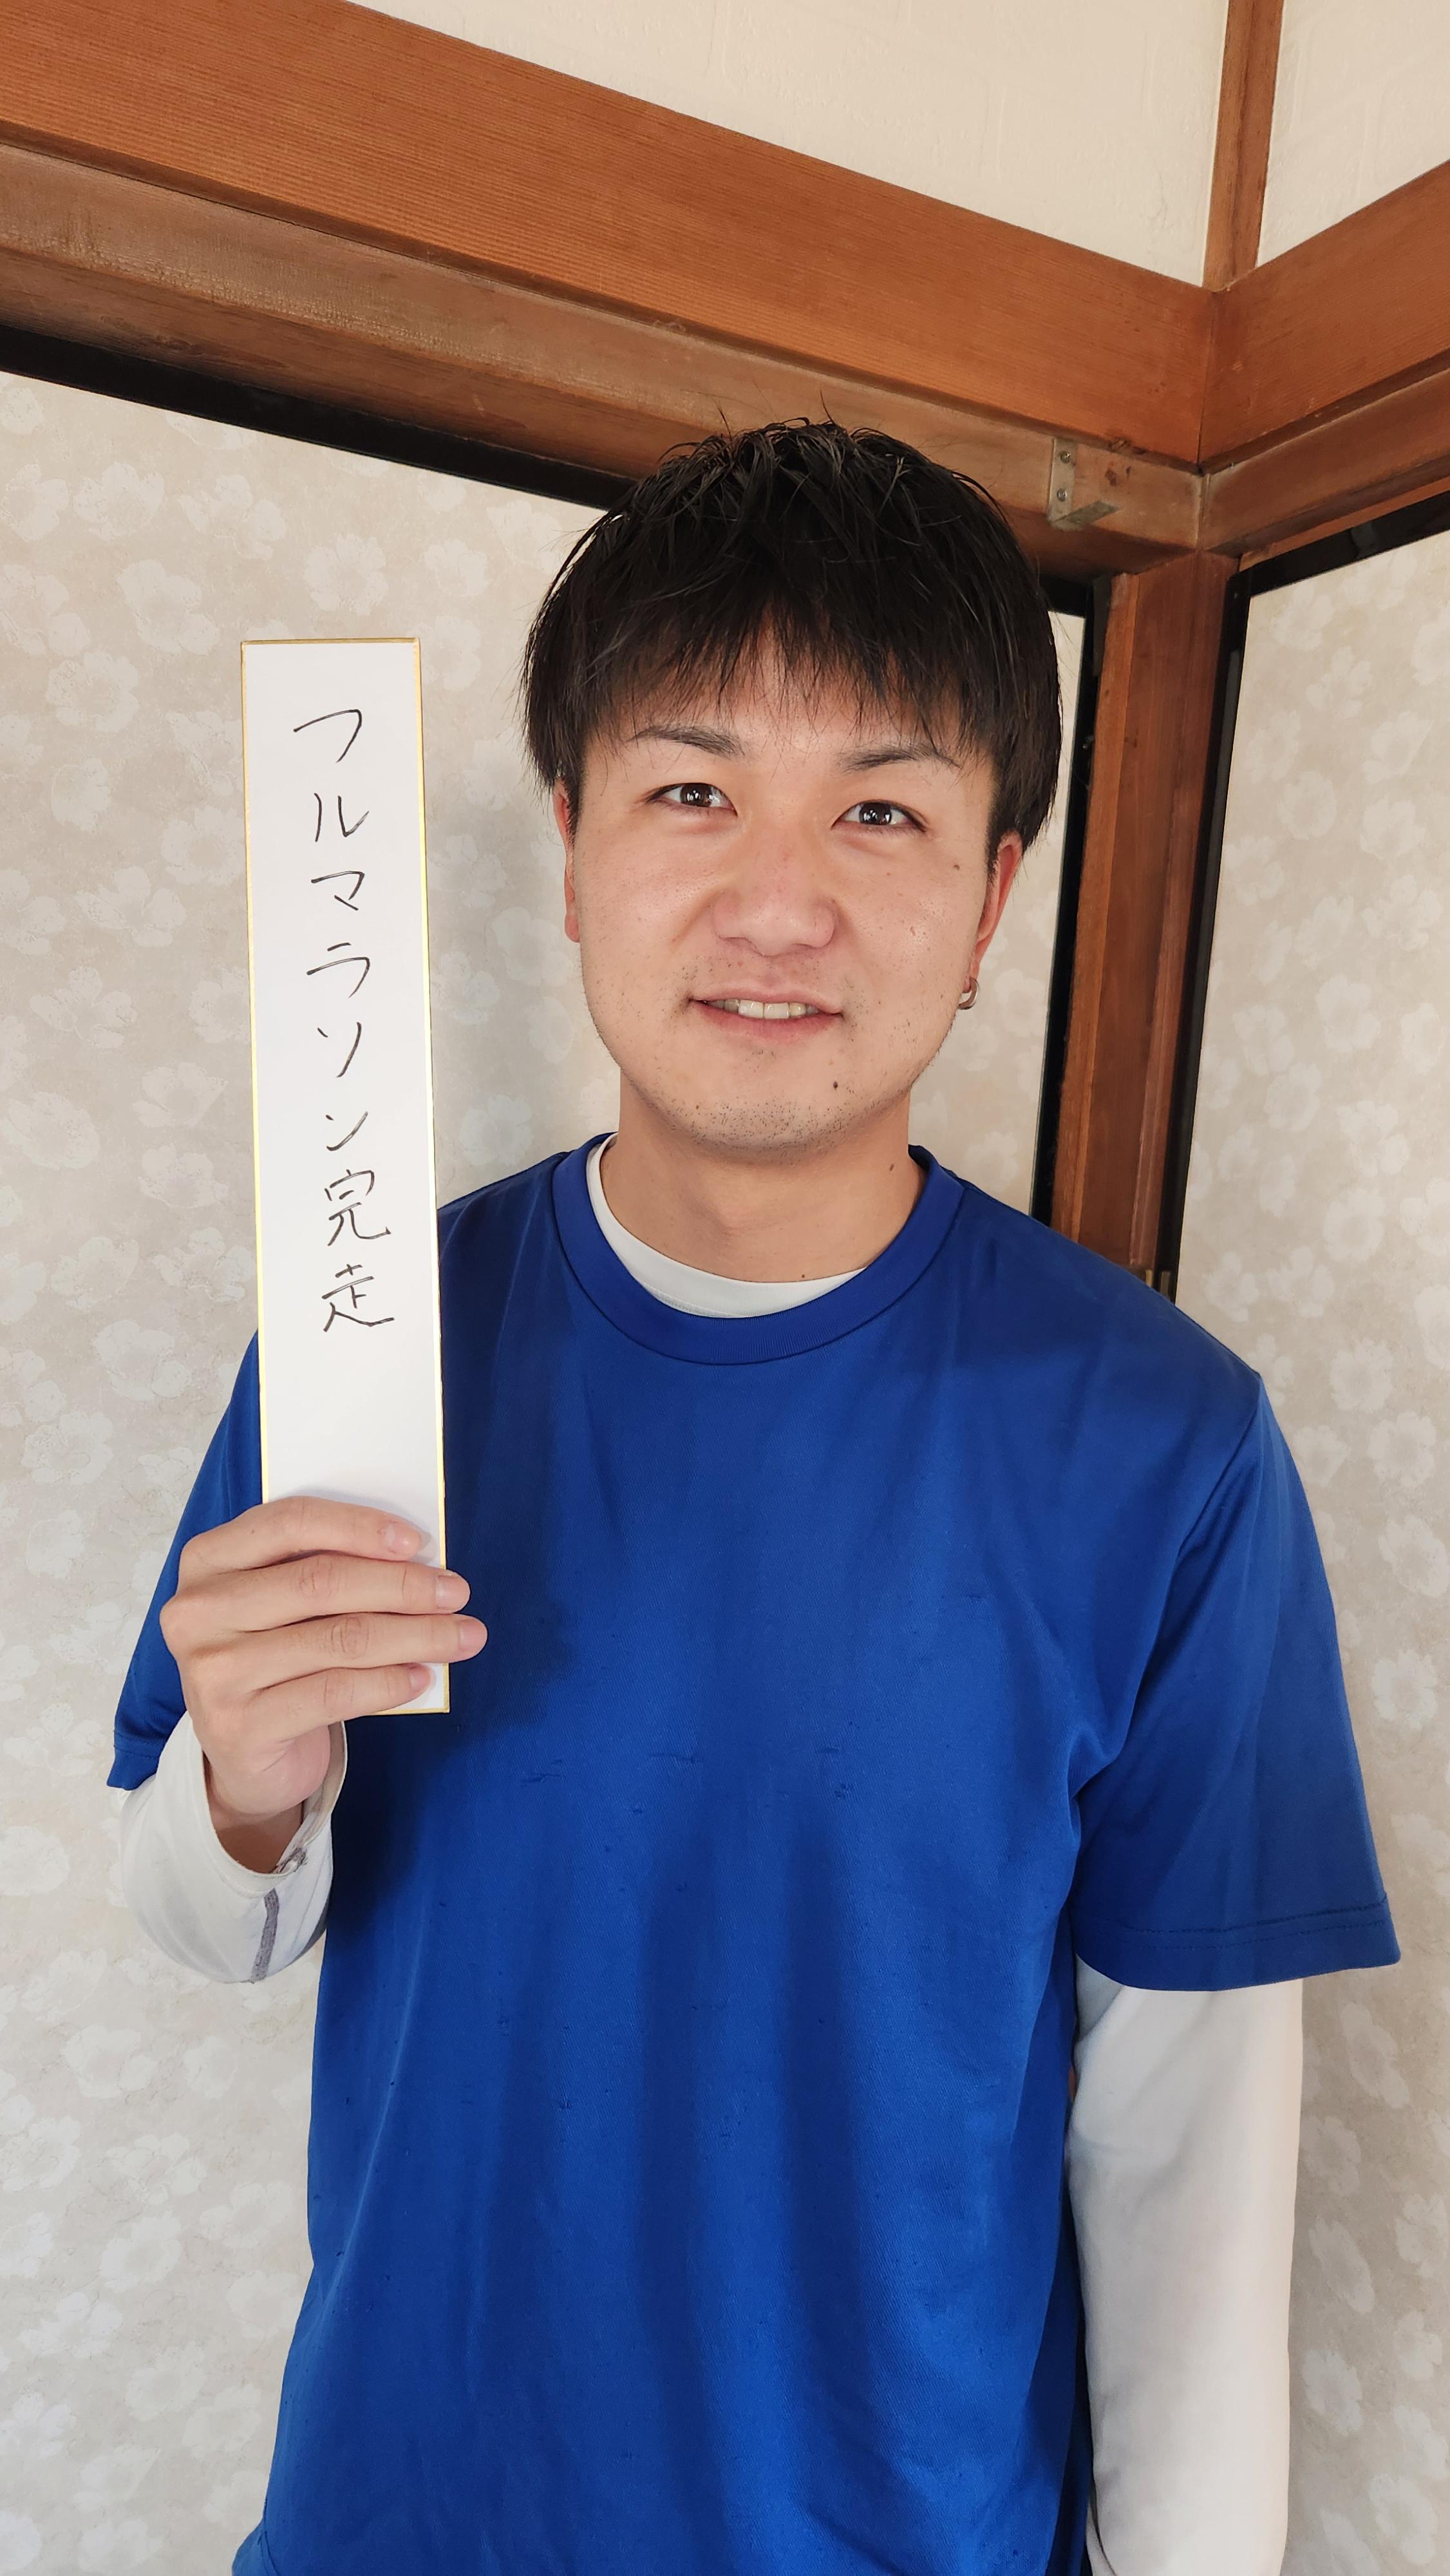 フルマラソン完走